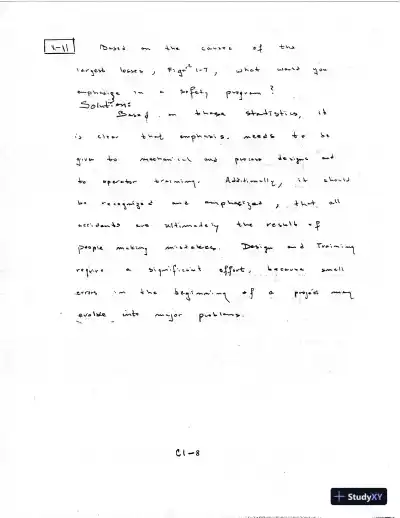 1-11 Based on the causes of the
largest losses, Figure 1-7, what would you
emphasize in a safety program?
Solution:
Based on these statistics, it
is clear that emphasis needs to be
given to mechanical and process designs and
to operator training. Additionally, it should
be recognized and emphasized, that all
accidents are ultimately the result of
people making mistakes. Design and Training
require a significant effort, because small
errors in the beginning of a project may
evolve into major problems.
C1-8
StudyXY